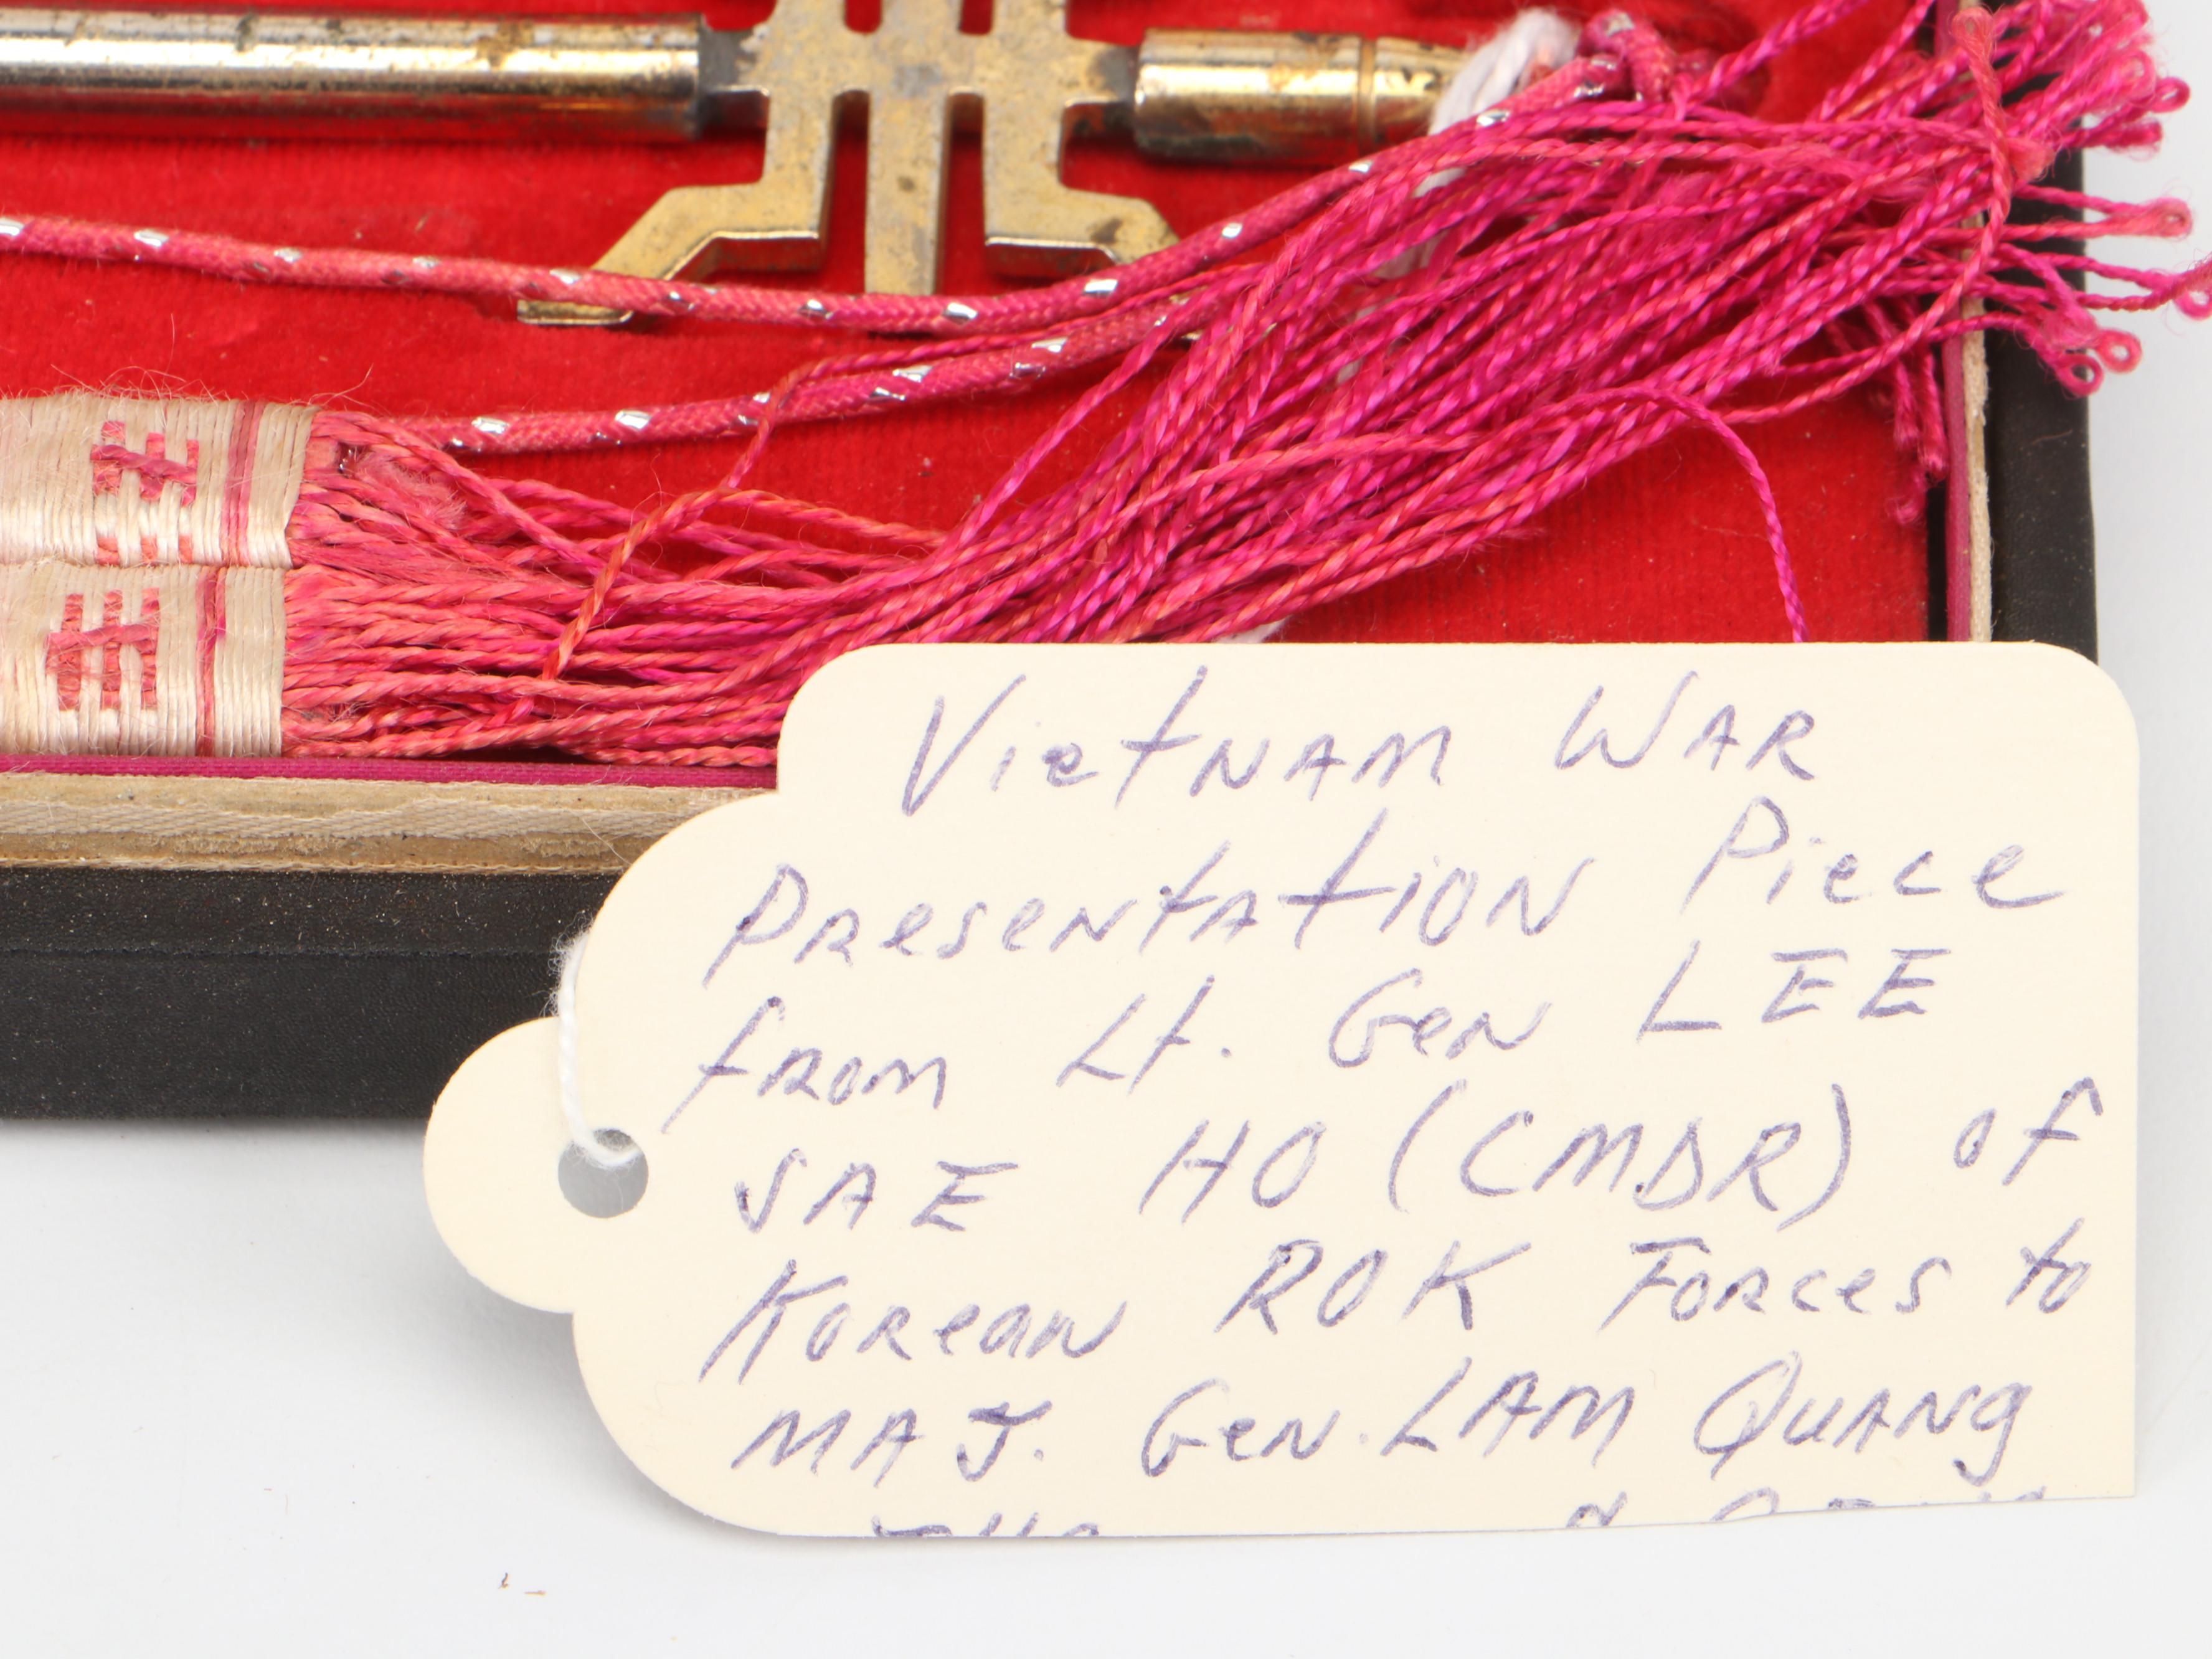 VietNAM WAR
PResentAtion Piece
from Lt. Gen LEE
SAE HO (CMDR) of
Korean ROK Forces to
MAJ. Gen. LAM QUANg